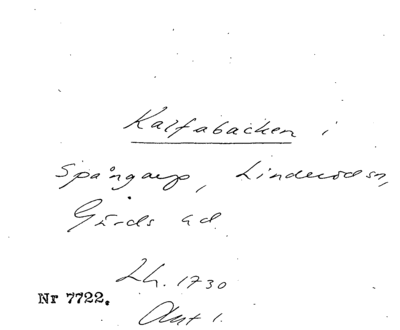 Kalfabacken i
Spångarp, Linderöds sn,
Gärds hd.
Lh. 1730
Nr 7722.
Akt 1.